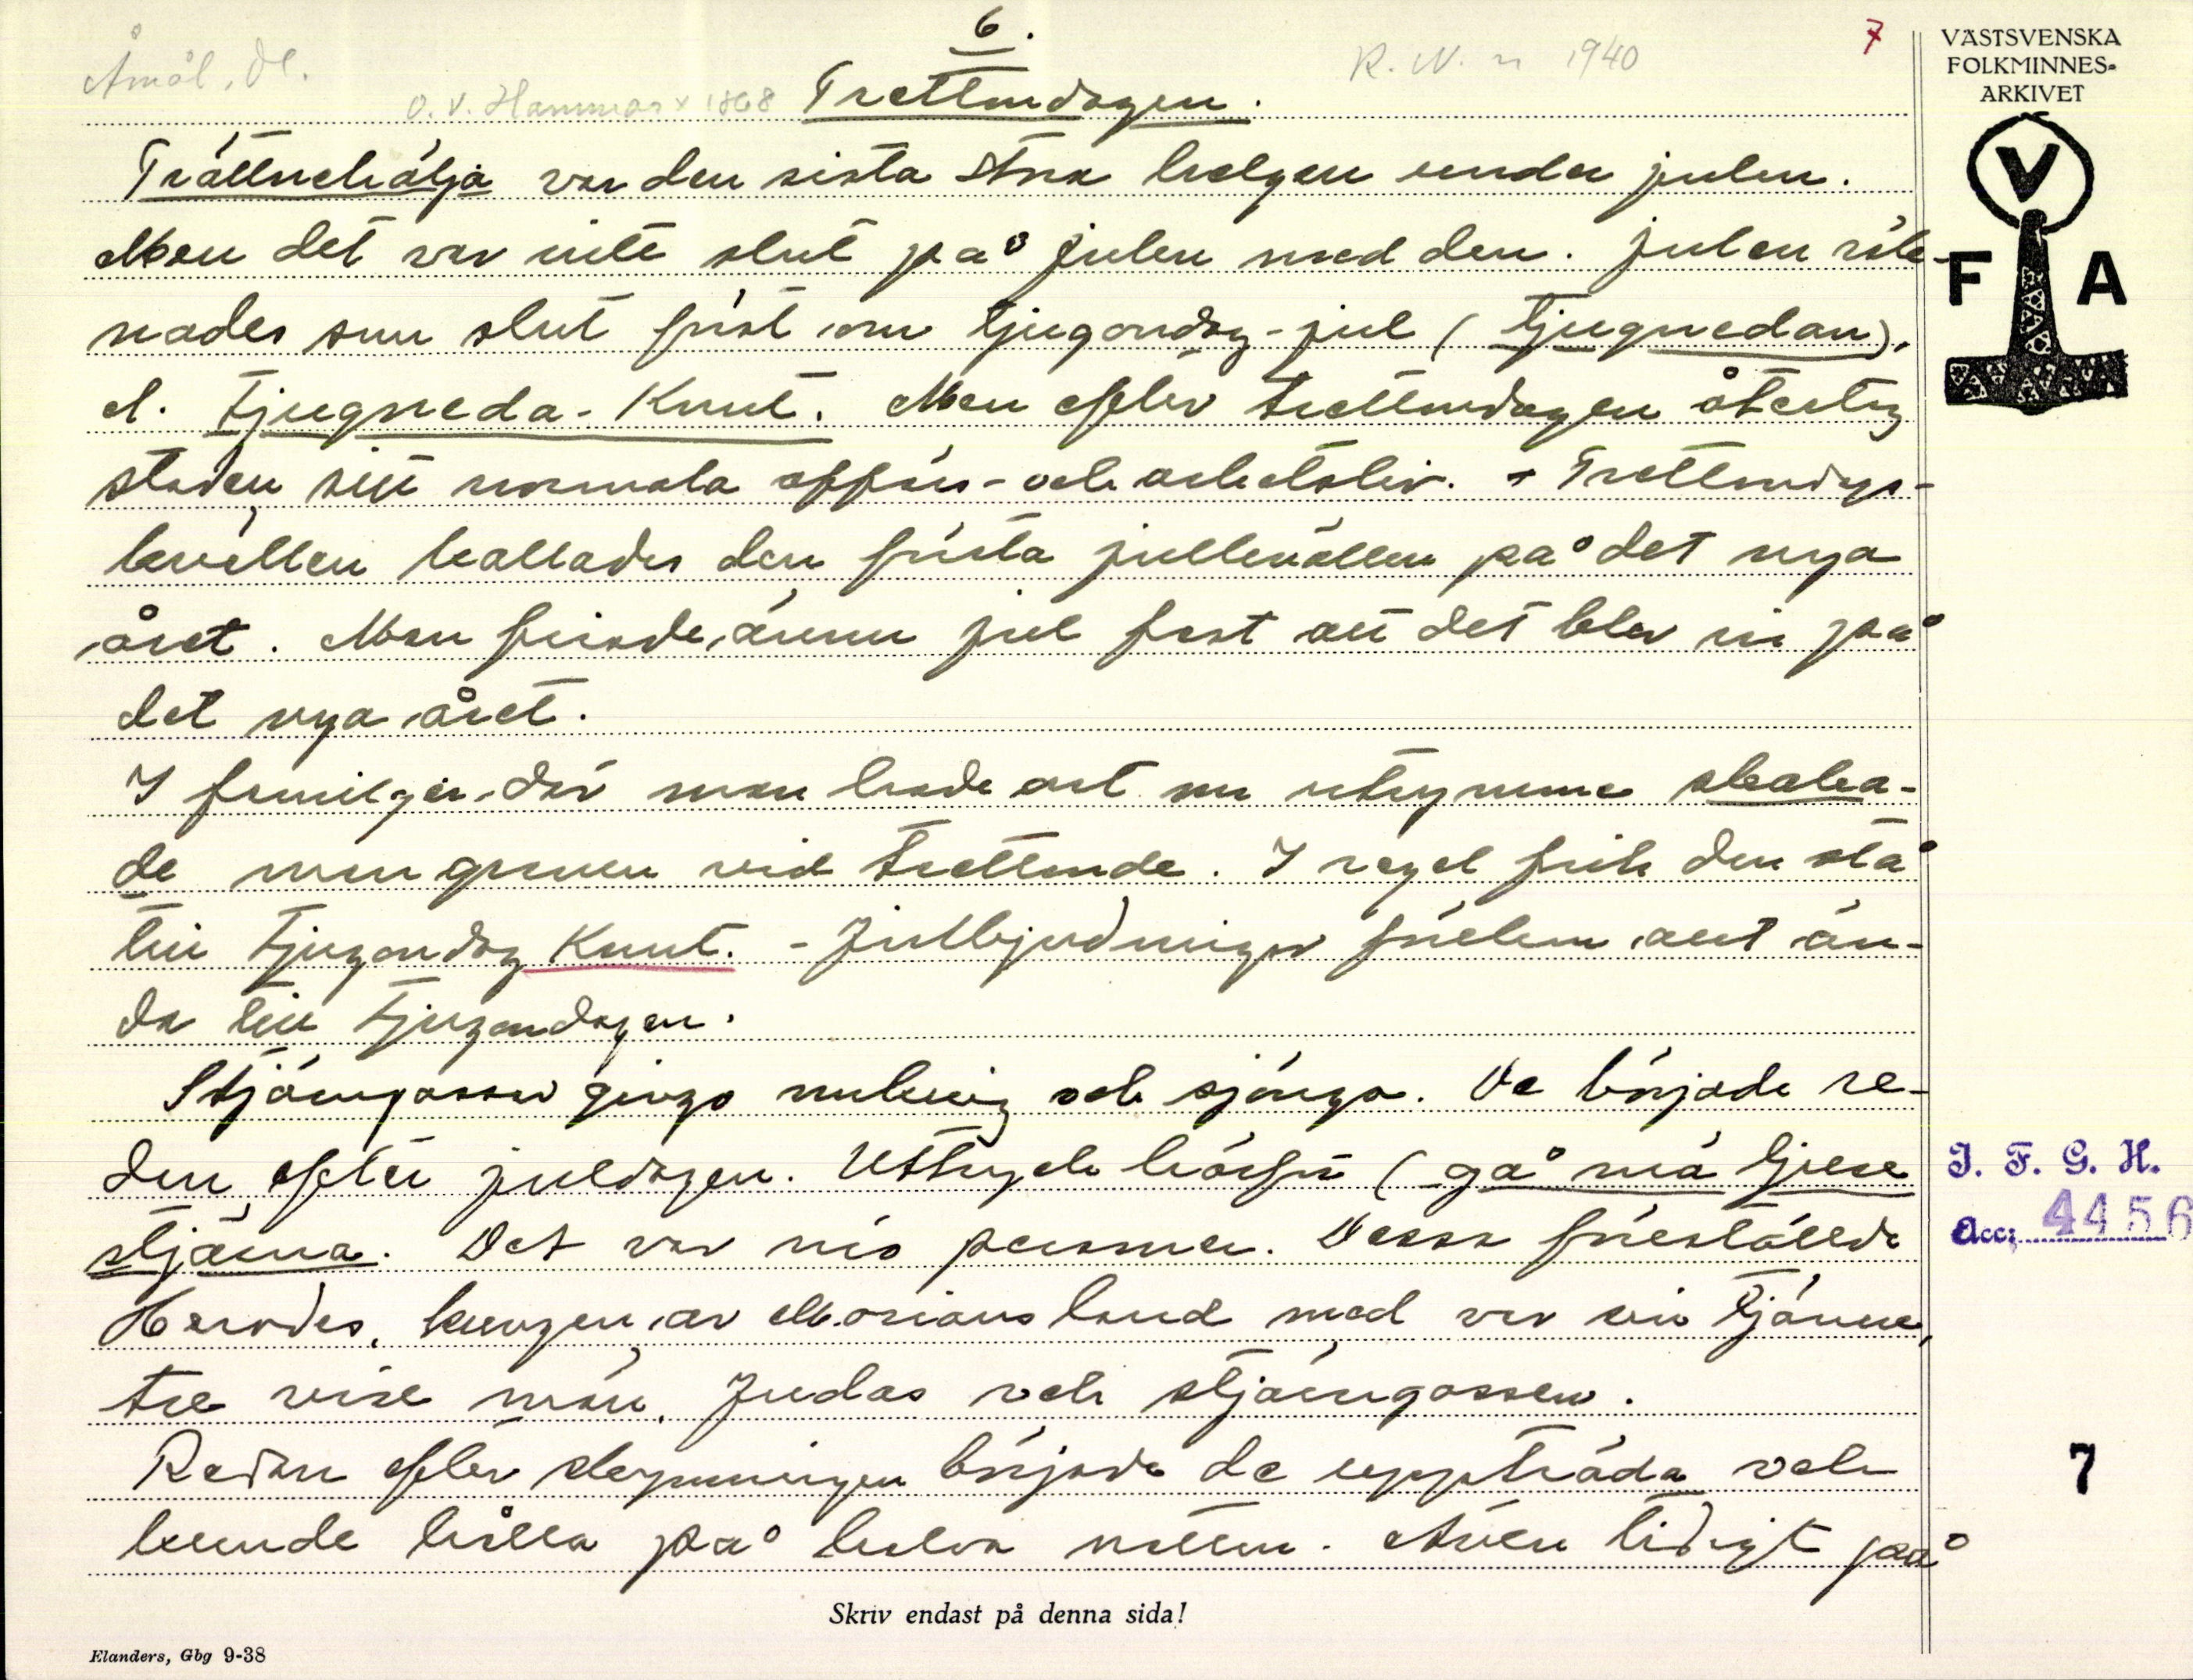 6.
Åmål, Dl.
R. N. n 1940
7
O. V. Hammar x 1868 Trettondagen.
Trättnehälja var den sista stora helgen under julen.
Men det var inte slut på julen med den. Julen räk-
nades som slut först om tjugondag-jul (tjugnedan),
el. tjugneda-Knut. Men efter trettondagen återtog
staden sitt normala affärs- och arbetsliv. - Trettondags-
kvällen kallades den första julkvällen på det nya
året. Man firade ännu jul fast att det blev in på
det nya året.
I familjer där man hade ont om utrymme skaka-
de man granen vid trettonde. I regel fick den stå
till tjugondag Knut. - Julbjudningar förekom allt än-
da till tjugondagen.
Stjärngossar gingo omkring och sjöngo. De började re-
dan efter juldagen. Uttryck härför (gå mä ljuse
stjärna. Det var nio personer. Dessa föreställde
Herodes, kungen av Morians land med var sin tjänare,
tre vise män, Judas och stjärngossen.
Redan efter skymningen började de uppträda och
kunde hålla på halva natten. Även tidigt på
Skriv endast på denna sida!
Elanders, Gbg 9-38
VÄSTSVENSKA
FOLKMINNES-
ARKIVET
V
F A
I. F. G. H.
Acc: 4456
7